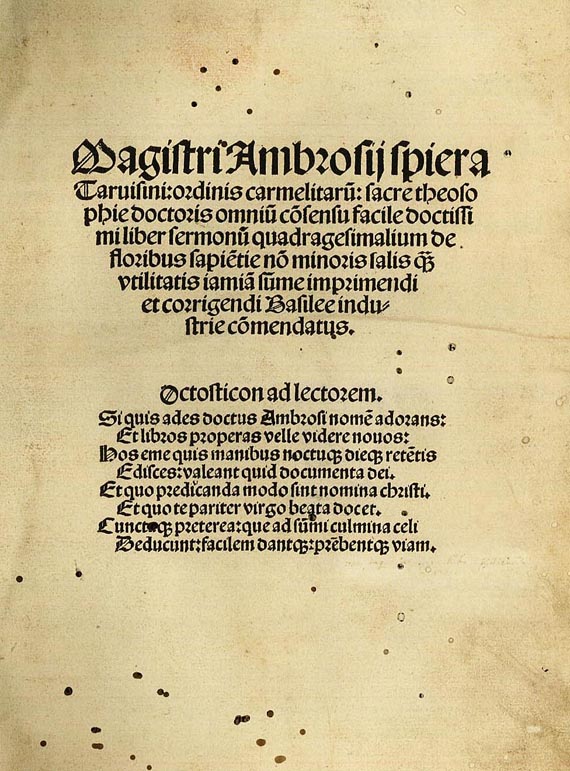 Magistri Ambrosij spiera
Taruisini: ordinis carmelitarū: sacre theoso
phie doctoris omniū cōsensu facile doctissi
mi liber sermonū quadragesimalium de
floribus sapiētie nō minoris salis q̄ꝫ
vtilitatis iamiā sūme imprimendi
et corrigendi Basilee indu⸗
strie cōmendatus.
Octosticon ad lectorem.
Si quis ades doctus Ambrosi nomē adorans:
Et libros properas velle videre nouos:
Hos eme quis manibus noctuqꝫ dieqꝫ retētis
Edisces: valeant quid documenta dei.
Et quo predicanda modo sint nomina christi.
Et quo te pariter virgo beata docet.
Cunctaqꝫ preterea: que ad sūmi culmina celi
Deducunt: facilem dantqꝫ: prēbentqꝫ viam.